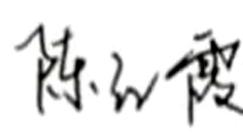 陈红霞